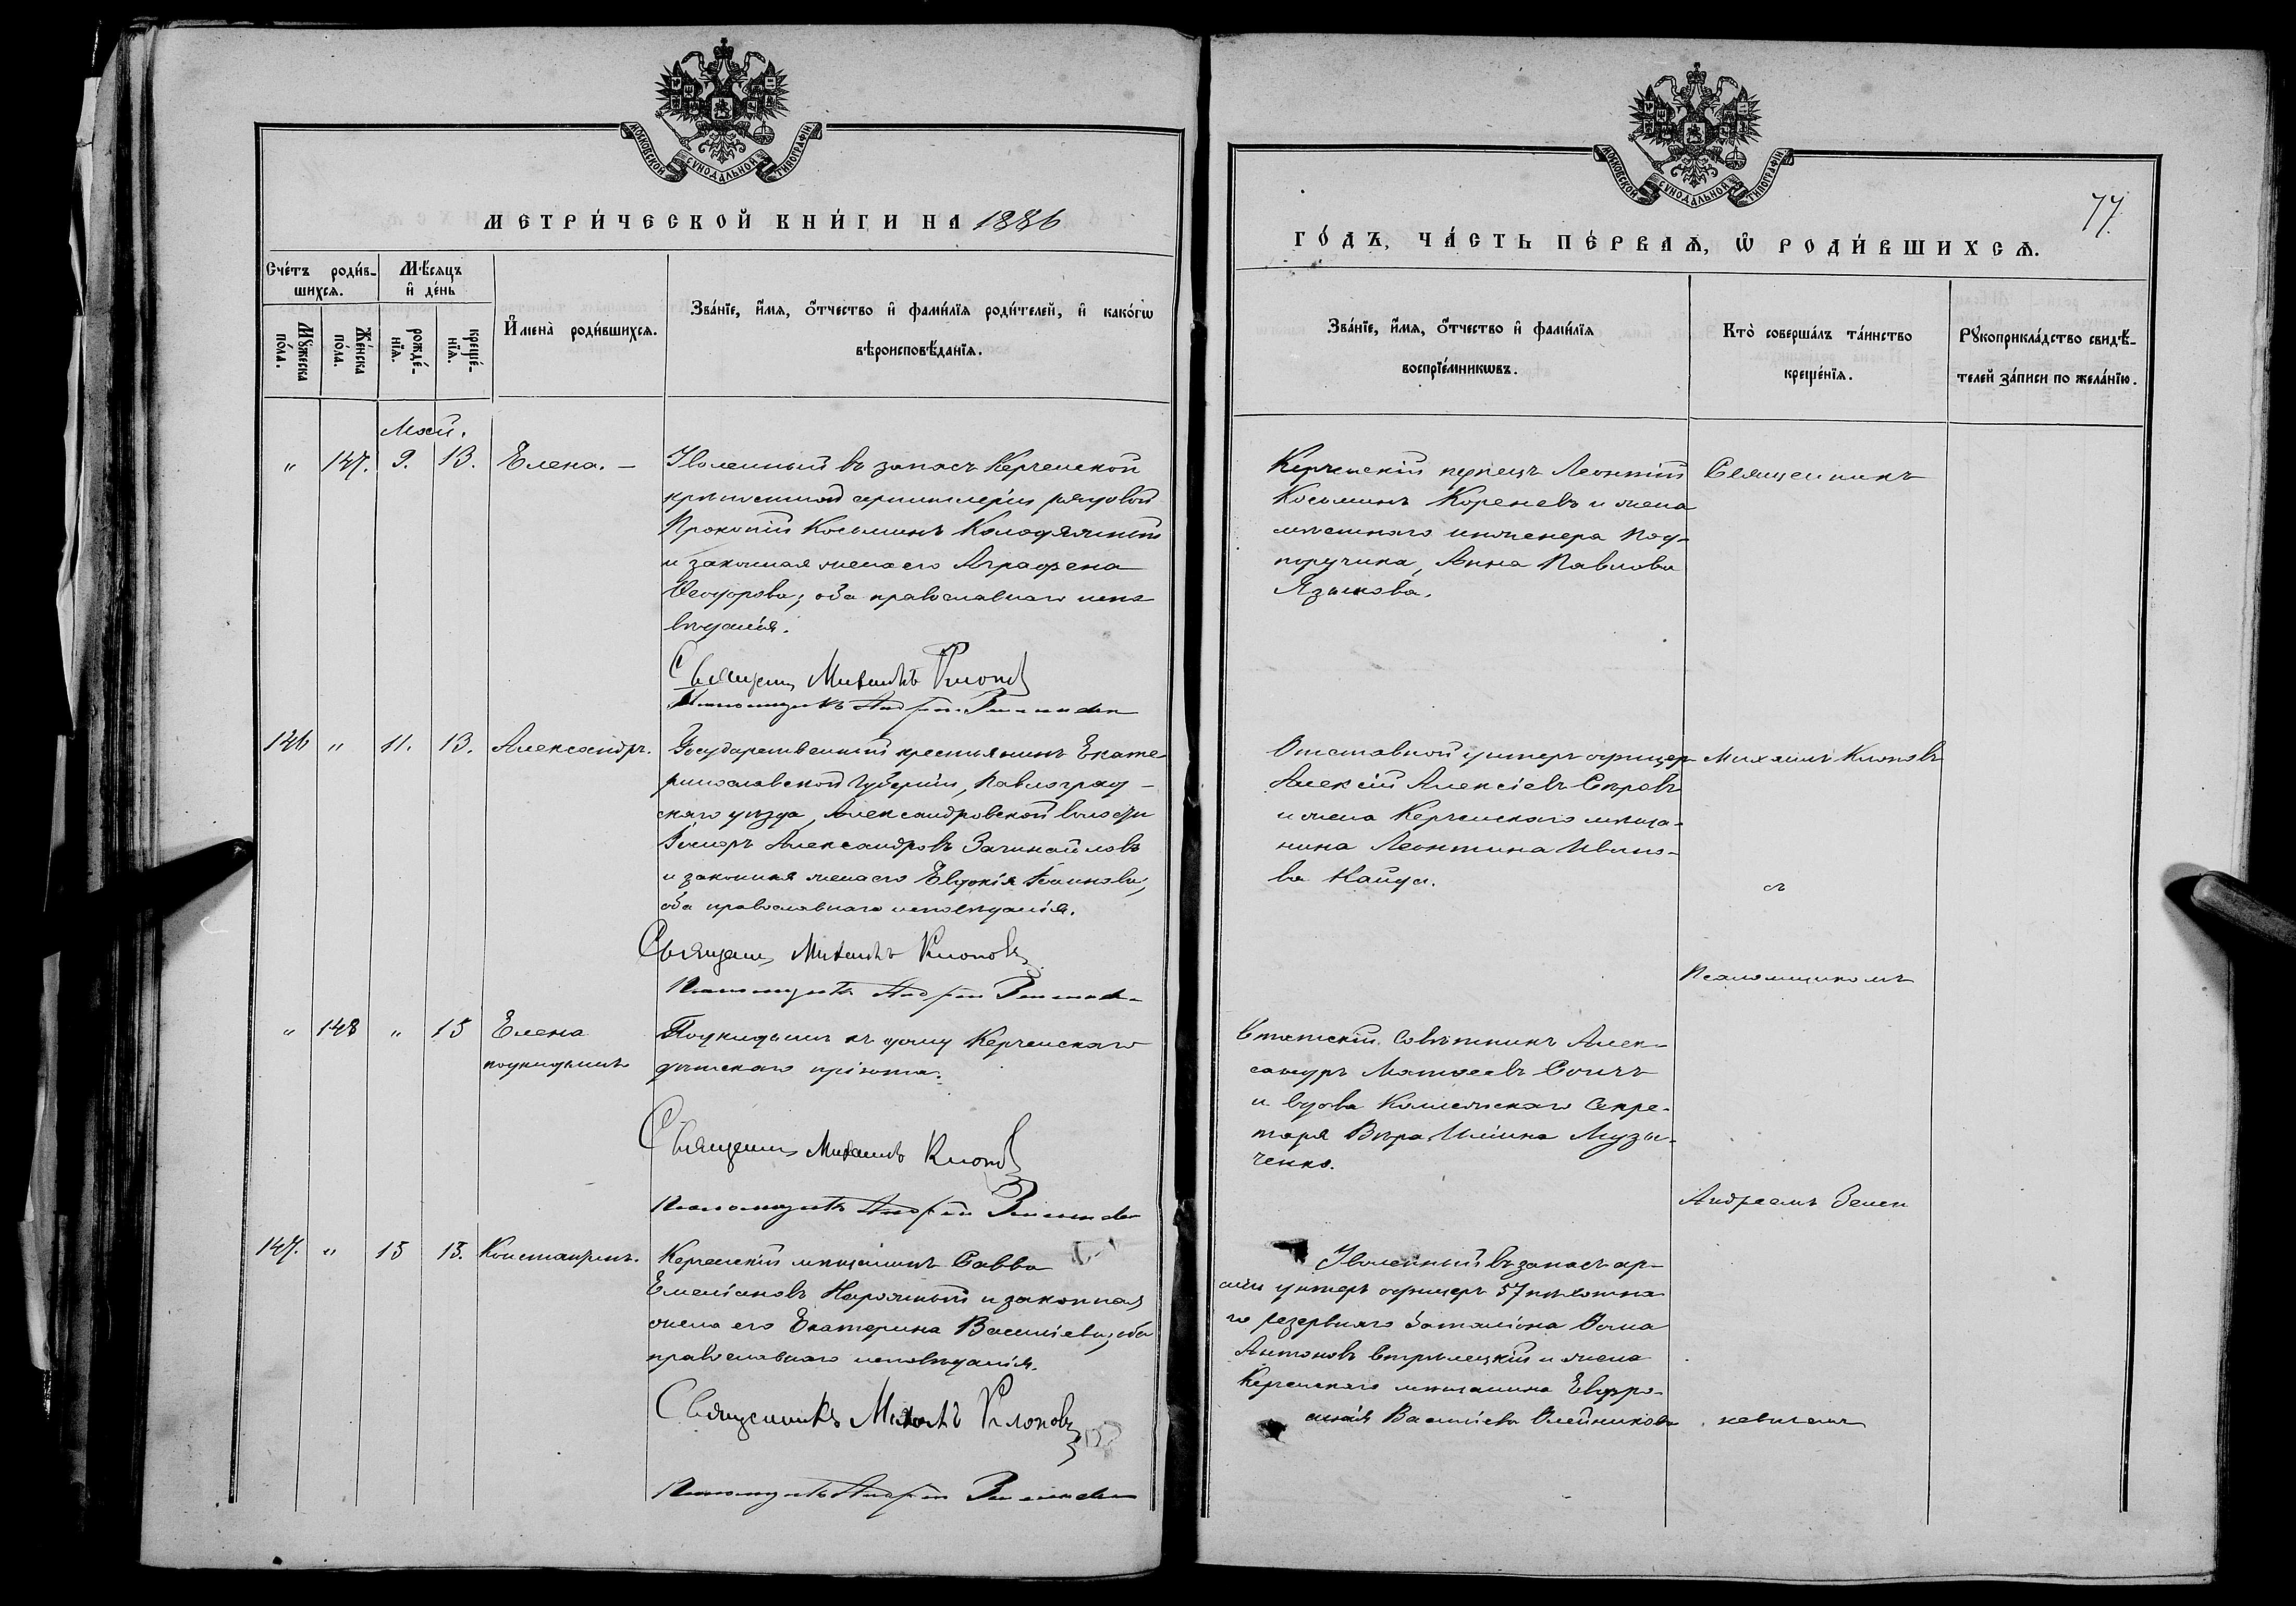 МОСКОВСКОЙ СѴНОДАЛЬНОЙ ТИПОГРАФІИ
МЕТРИ́ЧЕСКОЙ КНИ́ГИ НА 1886
Сче́тъ роди́вшихсѧ.
Мѣ́сяцъ и҆ де́нь
И҆мена̀ роди́вшихсѧ.
Зва́нїе, и҆́мѧ, ѻ҆́тчество и҆ фами́лїѧ роди́телей, и҆ како́гѡ
вѣроисповѣ́данїѧ.
Мꙋ́жеска по́ла.
Же́нска по́ла.
рожде́нїѧ.
креще́нїѧ.
Май.
" 147. 9. 13. Елена. –
Уволенный въ запасъ Керченской
крѣпостной артиллеріи рядовой
Прокопій Косьминъ Колодяжный
и законная жена его Аграфена
Ѳеодорова; оба православнаго испо-
вѣданія.
Священ. Михаилъ Клоповъ
Псаломщикъ Андрей
146 " 11. 13. Александръ.
Государственный крестьянинъ Екате-
ринославской губерніи, Павлоград-
скаго уѣзда, Александровской волости
Александровъ
и законная жена его Евдокія
оба православнаго исповѣданія.
Священ. Михаилъ Клоповъ
Псаломщикъ Андрей
" 148 " 15 Елена
подкидышъ
Подкидышъ къ дому Керченскаго
дѣтскаго пріюта.
Священ. Михаилъ Клоповъ
Псаломщикъ Андрей
147. " 15 15. Константинъ.
Керченскій мѣщанинъ Савва
Емеліановъ Нарожный и законная
жена его Екатерина Василіева; оба
православнаго исповѣданія.
Священникъ Михаилъ Клоповъ
Псаломщикъ Андрей
МОСКОВСКОЙ СѴНОДАЛЬНОЙ ТИПОГРАФІИ
77.
ГО́ДЪ, ЧА́СТЬ ПЕ́РВАѦ, Ѡ҆ РОДИ́ВШИХСѦ.
Зва́нїе, и҆́мѧ, ѻ҆́тчество и҆ фами́лїѧ
воспрїе́мникѡвъ.
Кто̀ соверша́лъ та́инство
креще́нїѧ.
Рꙋкоприкла́дство свидѣ́-
телей за́писи по жела́нїю.
Керченскій купецъ Леонтій
Косьминъ Кореневъ и жена
инженера под-
поручика, Анна Павлова
Языкова.
Священникъ
Отставной унтеръ офицеръ
Алексій Алексіевъ Сѣровъ
и жена Керченскаго мѣща-
нина Леонтина Ивано-
ва
Михаилъ Клоповъ
съ
Псаломщикомъ
Статскій Совѣтникъ Алек-
сандръ Матѳеевъ Сончъ
и вдова Коллежскаго Секре-
таря Вѣра Иліина Музы-
ченко.
Андреемъ Зелен
Уволенный въ запасъ ар-
міи унтеръ офицеръ 57 пѣхотна-
го резервнаго баталіона Ѳома
Антоновъ Стрѣлецкій и жена
Керченскаго мѣщанина Евфро-
синія Василіева Олейникова
кевичемъ